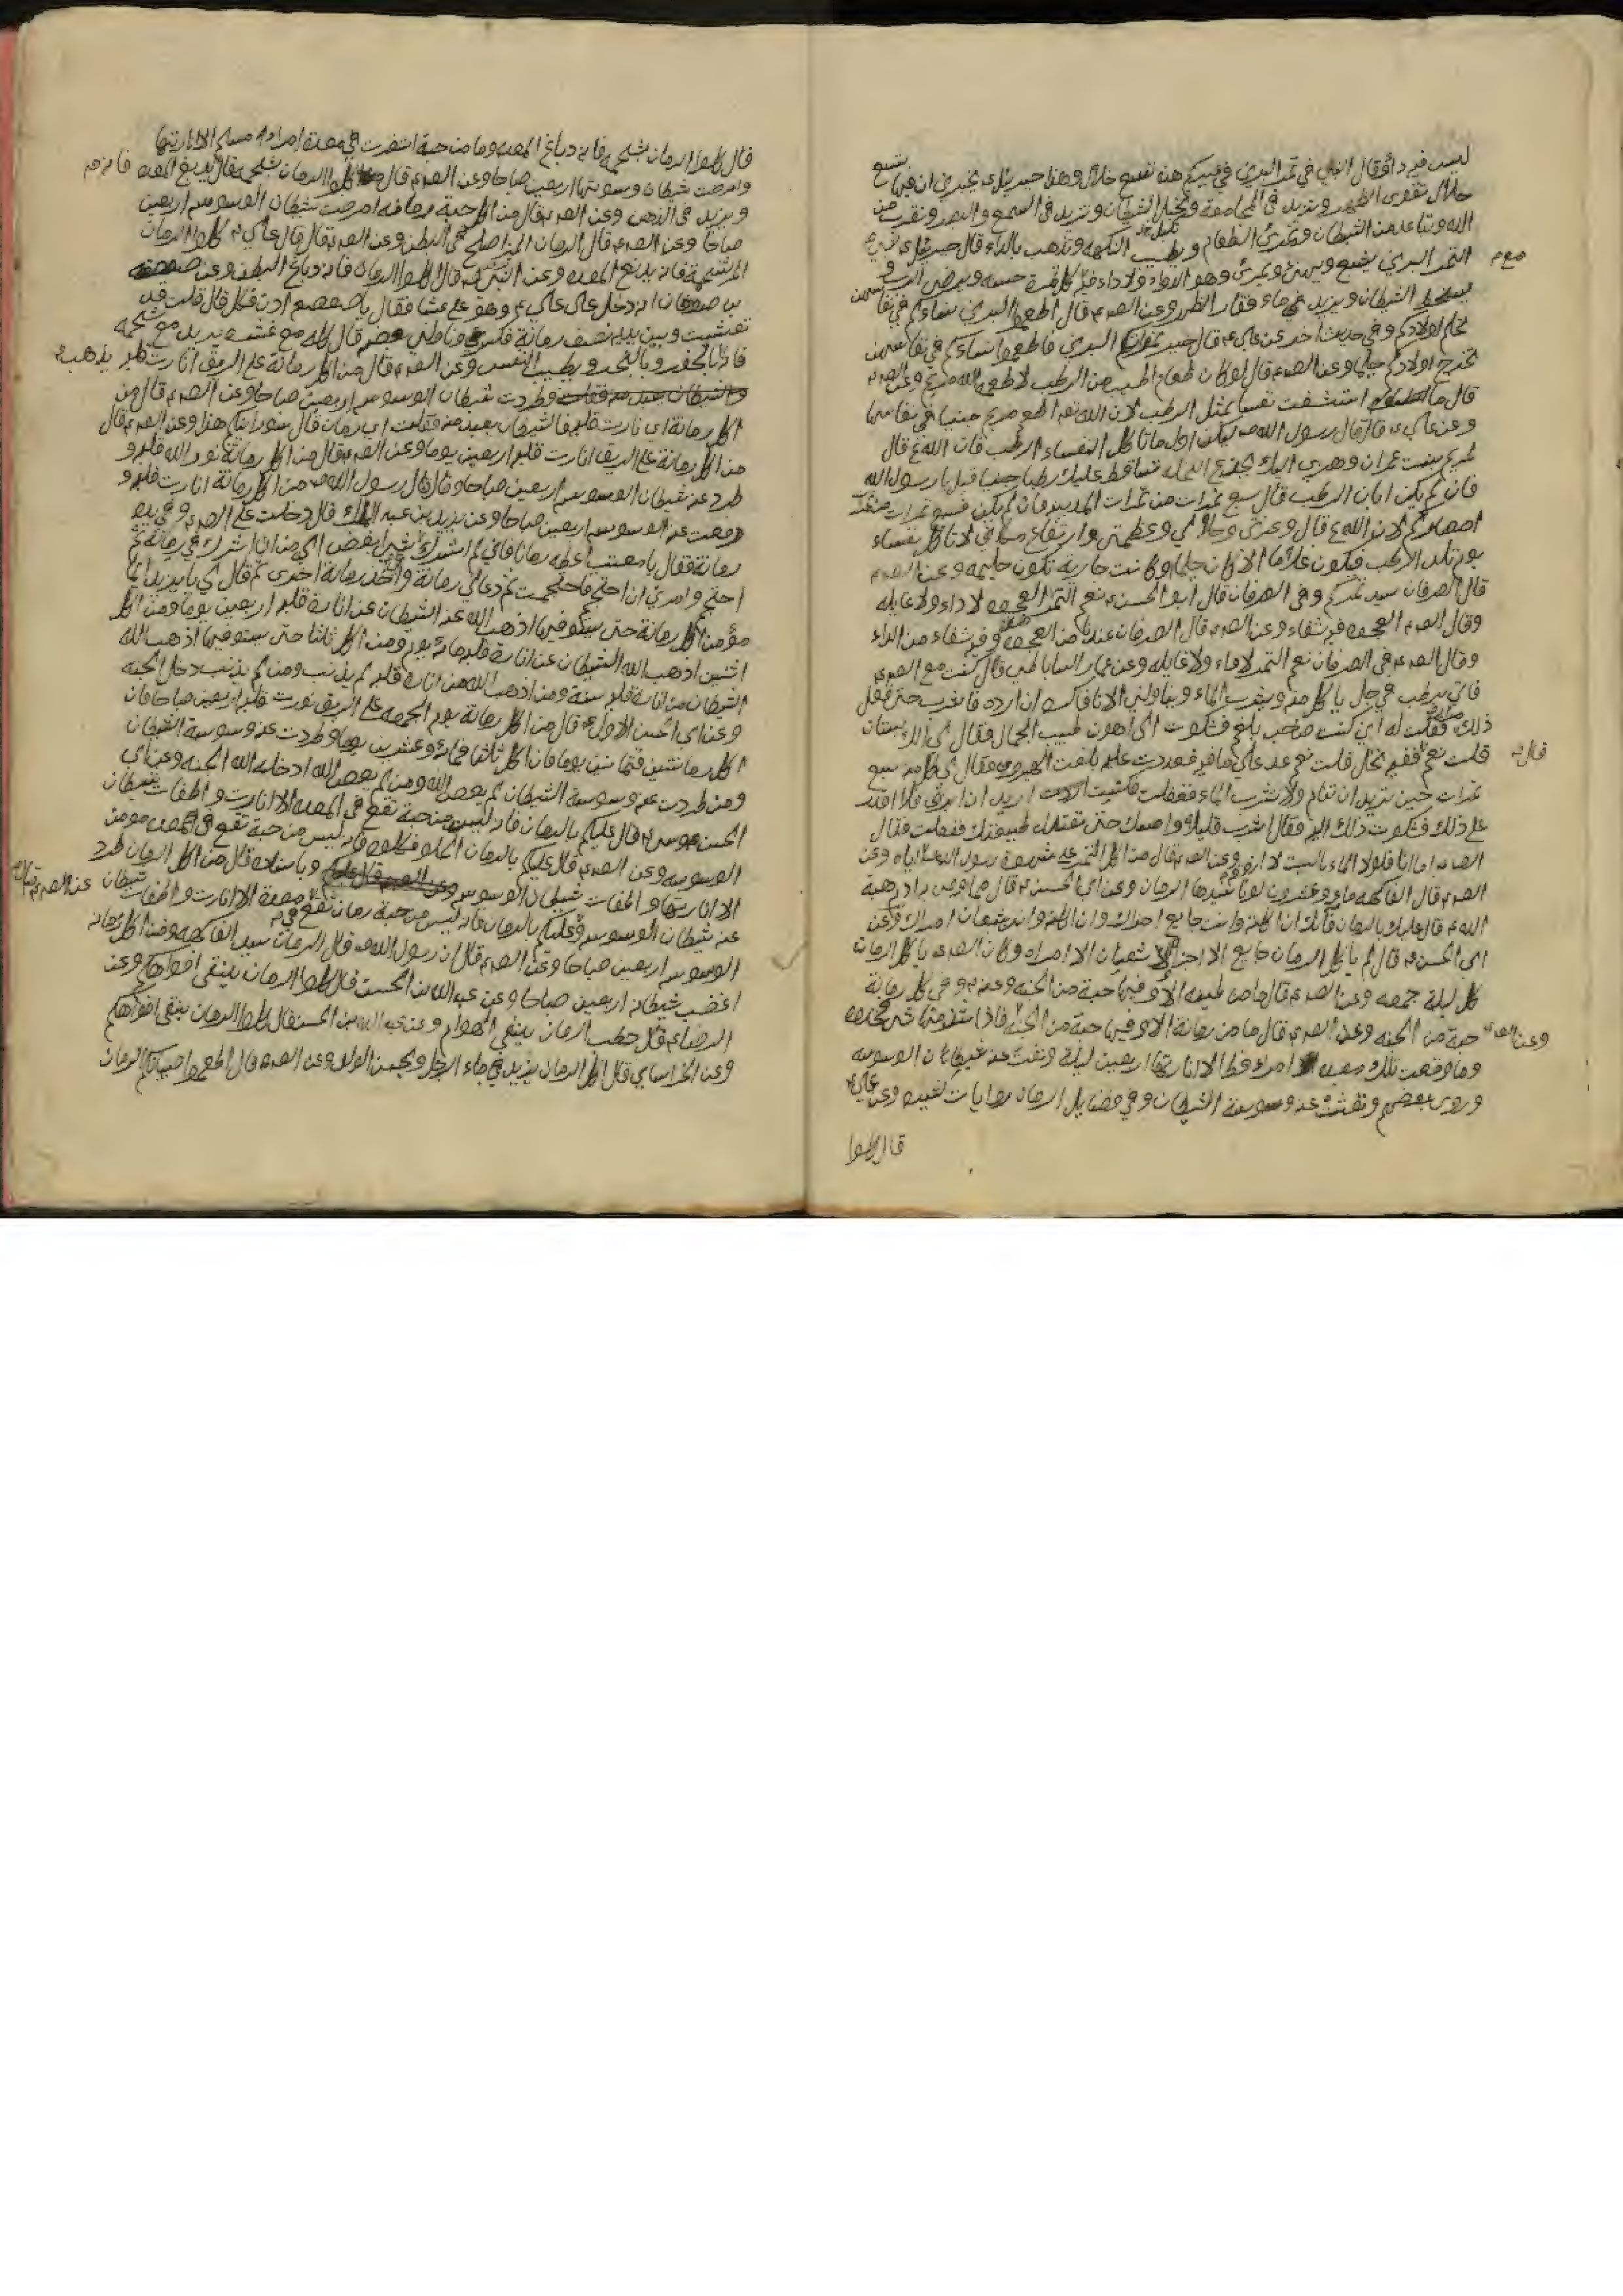 ليس فيه داؤ وقال النبي في تمر البرني في فيكم هذه تسع خلال وهذا جبرئيل يخبرني ان فيها تسع
خلال تقوى الظهر وتزيد في المجامعة وتخبل الشيطان وتزيد في السمع والبصر وتقرب من
الله وتباعد من الشيطان وتمرئ الطعام وتطيب النكهة وتذهب بالداء قال جبرئيل
التمر البرني يشبع ويهنئ ويمرئ وهو الدواء ولا داء فيه مع كل تمرة حسنه ويرضى الرب و
يسخط الشيطان ويزيد في ماء فقار الظهر وعن الص قال اطعموا البرني نساءكم في نفاسهن
تحلم اولادكم وفي حديث اخر عن علي قال خير تمراتكم البرني فاطعموا نساءكم في نفاسهن
تخرج اولادكم حلما وعن الص قال لو كان طعام اطيب من الرطب لاطعمه الله مريم وعن الص
قال ما استشفت نفساء بمثل الرطب لان الله اطعم مريم جنيا في نفاسها
وعن علي قال قال رسول الله ليكن اول ما تاكل النفساء الرطب فان الله قال
لمريم بنت عمران وهزي اليك بجذع النخلة تساقط عليك رطبا جنيا قيل يا رسول الله
فان لم يكن ابان الرطب قال سبع تمرات من تمرات المدينه فان لم يكن فسبع تمرات من تمرات
امصاركم لان الله قال وعزتي وجلالي وعظمتي وارتفاع مكاني لا تاكل نفساء
يوم تلد الرطب فيكون غلاما الا كان حليما وكانت جارية تكون حليمه وعن الص
قال الصرفان سيد تمركم وفي الصرفان قال ابو الحسن نعم التمر العجوه لا داء ولا غايله
وقال الص العجوه فيه شفاء وعن الص قال الصرفان عندنا من العجوه وفيه شفاء من الداء
وقال الص في الصرفان نعم التمر لا داء ولا غايله وعن عمار الساباطي قال كنت مع الص
فاتي برطب فجعل ياكل منه ويشرب الماء ويناولني الاناء فاكره ان ارده فاشرب حتى فعل
ذلك مرارا فقلت له اني كنت صاحب بلغم فشكوت الى اهرن طبيب الحجاج فقال لي الك بستان
قلت نعم قال فيه نخل قلت نعم عد علي ما فيه فعددت عليه بلغت الهيرون فقال لي كل منه سبع
تمرات حين تريد ان تنام ولا تشرب الماء ففعلت فكنت اريد ان ابزق فلا اقدر
على ذلك فشكوت ذلك اليه فقال اشرب قليلا وامسك حتى تعتدل طبيعتك ففعلت فقال
الص اما انا فلولا الماء باليت لا اذوقه وعن الص قال من اكل التمر على شهوة رسول الله اياه وعن
الص قال الفاكهه مايه وعشرون لونا سيدها الرمان وعن ابي الحسن قال مما اوصى به ادم هبة
الله قال عليك بالرمان فانك ان اكلته وانت جايع اجزاك وان اكلته وانت شبعان امراك وعن
ابي الحسن قال لم ياكل الرمان جايع الا اجزاه ولا شبعان الا امراه وكان الص ياكل الرمان
كل ليلة جمعه وعن الص قال ما من طعمه الا وفيها حبة من الجنه وعنه وفي كل رمانة
حبة من الجنه وعن الص قال ما من رمانة الا وفيها حبة من الجنه فاذا شذ منها شئ فخذوه
وما وقعت تلك معده امرء قط الا انارتها اربعين ليلة ونفت عنه شيطان الوسوسه
وروى بعضهم ونفت عنه وسوسة الشيطان وفي فضايل الرمان روايات لغيره وعن علي
قال كلوا
قال كلوا الرمان بشحمه فانه دباغ المعده وما من حبة استقرت في معدة امرء مسلم الا انارتها
وامرضت شيطان وسوستها اربعين صباحا وعن الص قال كلوا الرمان بشحمه فانه يدبغ المعده
ويزيد في الذهن وعن الص قال من اكل حبة رمانه امرضت شيطان الوسوس اربعين
صباحا وعن الص قال الرمان المز اصلح في البطن وعن الص قال قال علي كلوا الرمان
المز بشحمه فانه يدبغ المعده وعن النبي قال كلوا الرمان فانه دباغ البطن وعن صعصعه
بن صوحان انه دخل على علي وهو على عشاء فقال يا صعصعه ادن فكل قال قلت قد
تعشيت وبين يديه نصف رمانة فكسر لي وناولني بعضه قال كله مع قشره يريد مع شحمه
فانه يذهب بالحفر وبالبخر ويطيب النفس وعن الص قال من اكل رمانة على الريق انارت قلبه
وطردت شيطان الوسوس اربعين صباحا وعن الص قال من
اكل رمانة انارت قلبه فالشيطان بعيد منه فقلت اي رمان قال سورانيكم هذا وعن الص قال
من اكل رمانة على الريق انارت قلبه اربعين يوما وعن الص قال من اكل رمانة نور الله قلبه و
طرد عنه شيطان الوسوس اربعين صباحا وقال قال رسول الله من اكل رمانة انارت قلبه و
رفعت عنه الوسوس اربعين صباحا وعن يزيد بن عبد الملك قال دخلت على الص وفي يده
رمانة فقال يا معتب اعطه رمانا فاني لم اشرك في شئ ابغض الي من ان اشرك في رمانة ثم
احتجم وامرني ان احتجم فاحتجمت ثم دعا لي رمانة واخذ رمانة اخرى ثم قال لي يا يزيد ايما
مؤمن اكل رمانة حتى يستوفيها اذهب الله عنه الشيطان عن انارة قلبه اربعين يوما ومن اكل
اثنين اذهب الله الشيطان عن انارة قلبه مائة يوم ومن اكل ثلاثا حتى يستوفيها اذهب الله
الشيطان عن انارة قلبه سنة ومن اذهب الله عن انارة قلبه لم يذنب ومن لم يذنب دخل الجنه
وعن ابي الحسن الاول قال من اكل رمانة يوم الجمعه على الريق نورت قلبه اربعين صباحا فان
اكل رمانتين فثمانين يوما فان اكل ثلاثا فمائة وعشرين يوما وطردت عنه وسوسة الشيطان
ومن طردت عنه وسوسة الشيطان لم يعص الله ومن لم يعص الله ادخله الله الجنه وعن ابي
الحسن موسى قال عليكم بالرمان فانه ليس من حبة تقع في المعده الا انارت واطفات شيطان
الوسوسه وعن الص قال عليكم بالرمان الحلو فكلوه فانه ليس من حبة تقع في معدة مومن
الا انارتها واطفات شيطان الوسوس وباسناده قال من اكل الرمان طرد
عنه شيطان الوسوس وعليكم بالرمان فانه ليس من حبة رمان تقع في معدة الا انارت واطفات شيطان
الوسوس اربعين صباحا وعن الص قال ان رسول الله قال الرمان سيد الفاكهه ومن اكل رمانه
اغضب شيطانه اربعين صباحا وعن عبد الله بن الحسن قال كلوا الرمان ينقى افواهكم وعن
الرضا قال حطب الرمان ينفي الهوام وعن عبد الله بن الحسن قال كلوا الرمان ينقى افواهكم
وعن الخراساني قال اكل الرمان يزيد في ماء الرجل ويحسن الولد وعن الص قال اطعموا صبيانكم الرمان